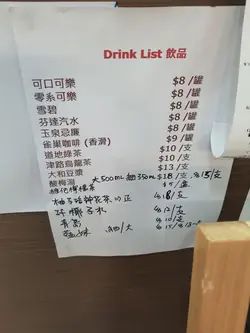 Drink List 飲品
可口可樂 $8 /罐
零系可樂 $8 /罐
雪碧 $8 /罐
芬達汽水 $8 /罐
玉泉忌廉 $8 /罐
雀巢咖啡 (香滑) $9 /罐
道地綠茶 $10 /支
津路烏龍茶 $10 /支
大和豆漿 $13 /支
酸梅湯 大500ML 細350ML $18 /支, 細 $15/支
維他檸檬茶 $5/盒
$18/支
椰子水 $12/支
$10/支
細/大